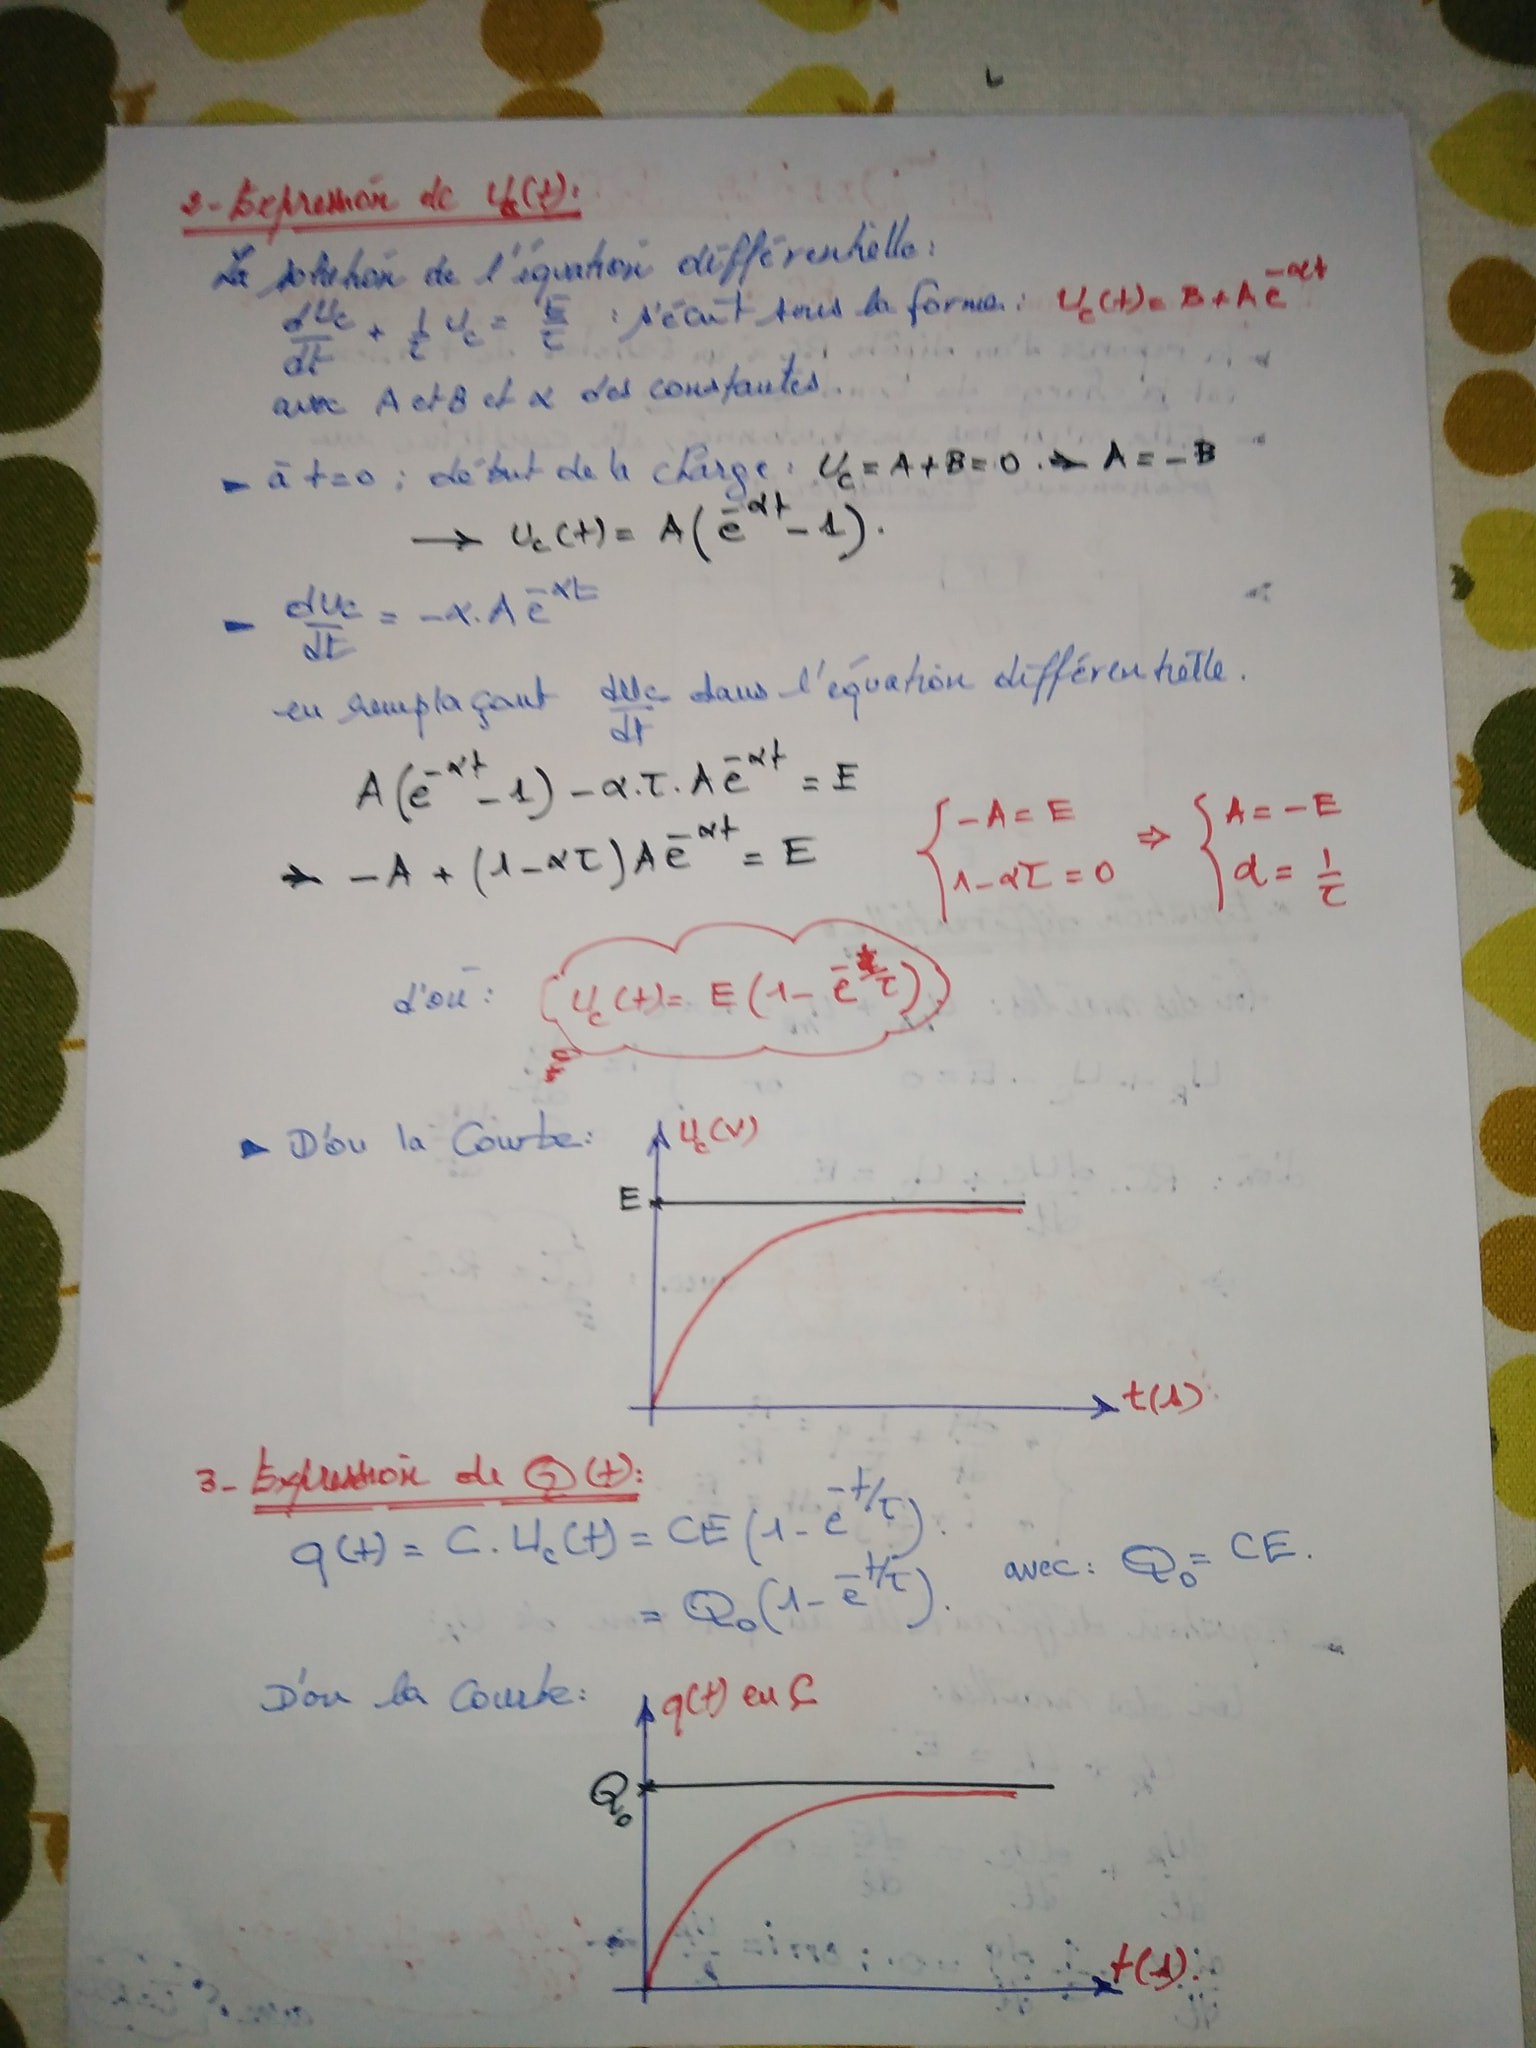 2- Expression de Uc(t):
La solution de l'équation différentielle:
dUc/dt + 1/τ Uc = E/τ : s'écrit sous la forme: Uc(t) = B + A e^-αt
avec A et B et α des constantes.
- à t=0 ; début de la charge: Uc = A + B = 0 → A = -B
→ Uc(t) = A(e^-αt - 1).
- dUc/dt = -α.A e^-αt
en remplaçant dUc/dt dans l'équation différentielle.
A(e^-αt - 1) - α.τ.A e^-αt = E
→ -A + (1-ατ)A e^-αt = E { -A = E 1-ατ = 0 ⇒ { A = -E α = 1/τ
d'où: Uc(t) = E(1- e^-t/τ)
► D'où la Courbe: Uc(V)
E
t(s)
3- Expression de Q(t):
q(t) = C.Uc(t) = CE(1- e^-t/τ).
= Q0(1- e^-t/τ). avec: Q0 = CE.
D'où la Courbe: q(t) en C
Q0
t(s).